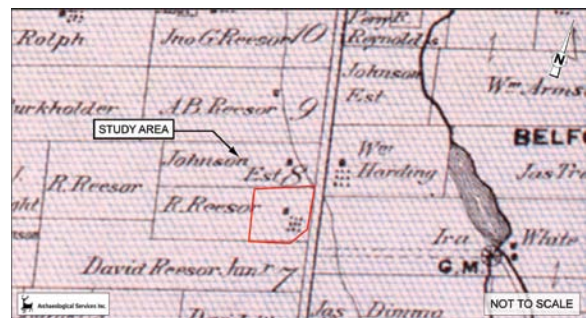 Rolph
Jno G. Reesor 10
Reynolds
Johnson
Est
Wm Arms
Burkholder
A.B. Reesor 9
STUDY AREA
BELFO
Johnson
Est 8
Wm
Harding
Jas Tra
R. Reesor
R. Reesor
Ira White
G.M.
David Reesor Junr 7
Jas Dimma
N
Archaeological Services Inc.
NOT TO SCALE